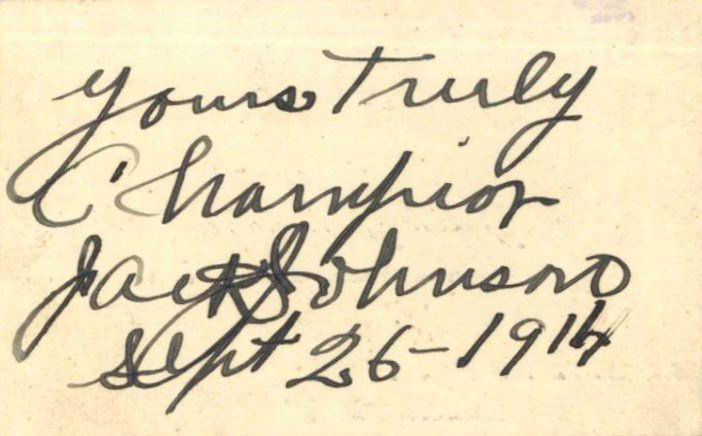 yours Truly
Champion
Jack Johnson
Sept 26-1914